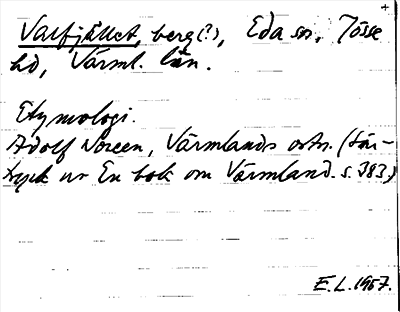 +
Valfjället, berg(?), Eda sn, Jösse
hd, Värml. län.
Etymologi.
Adolf Noreen, Värmlands ortn. (Sär-
tryck ur En bok om Värmland. s. 383)
E.L. 1957.